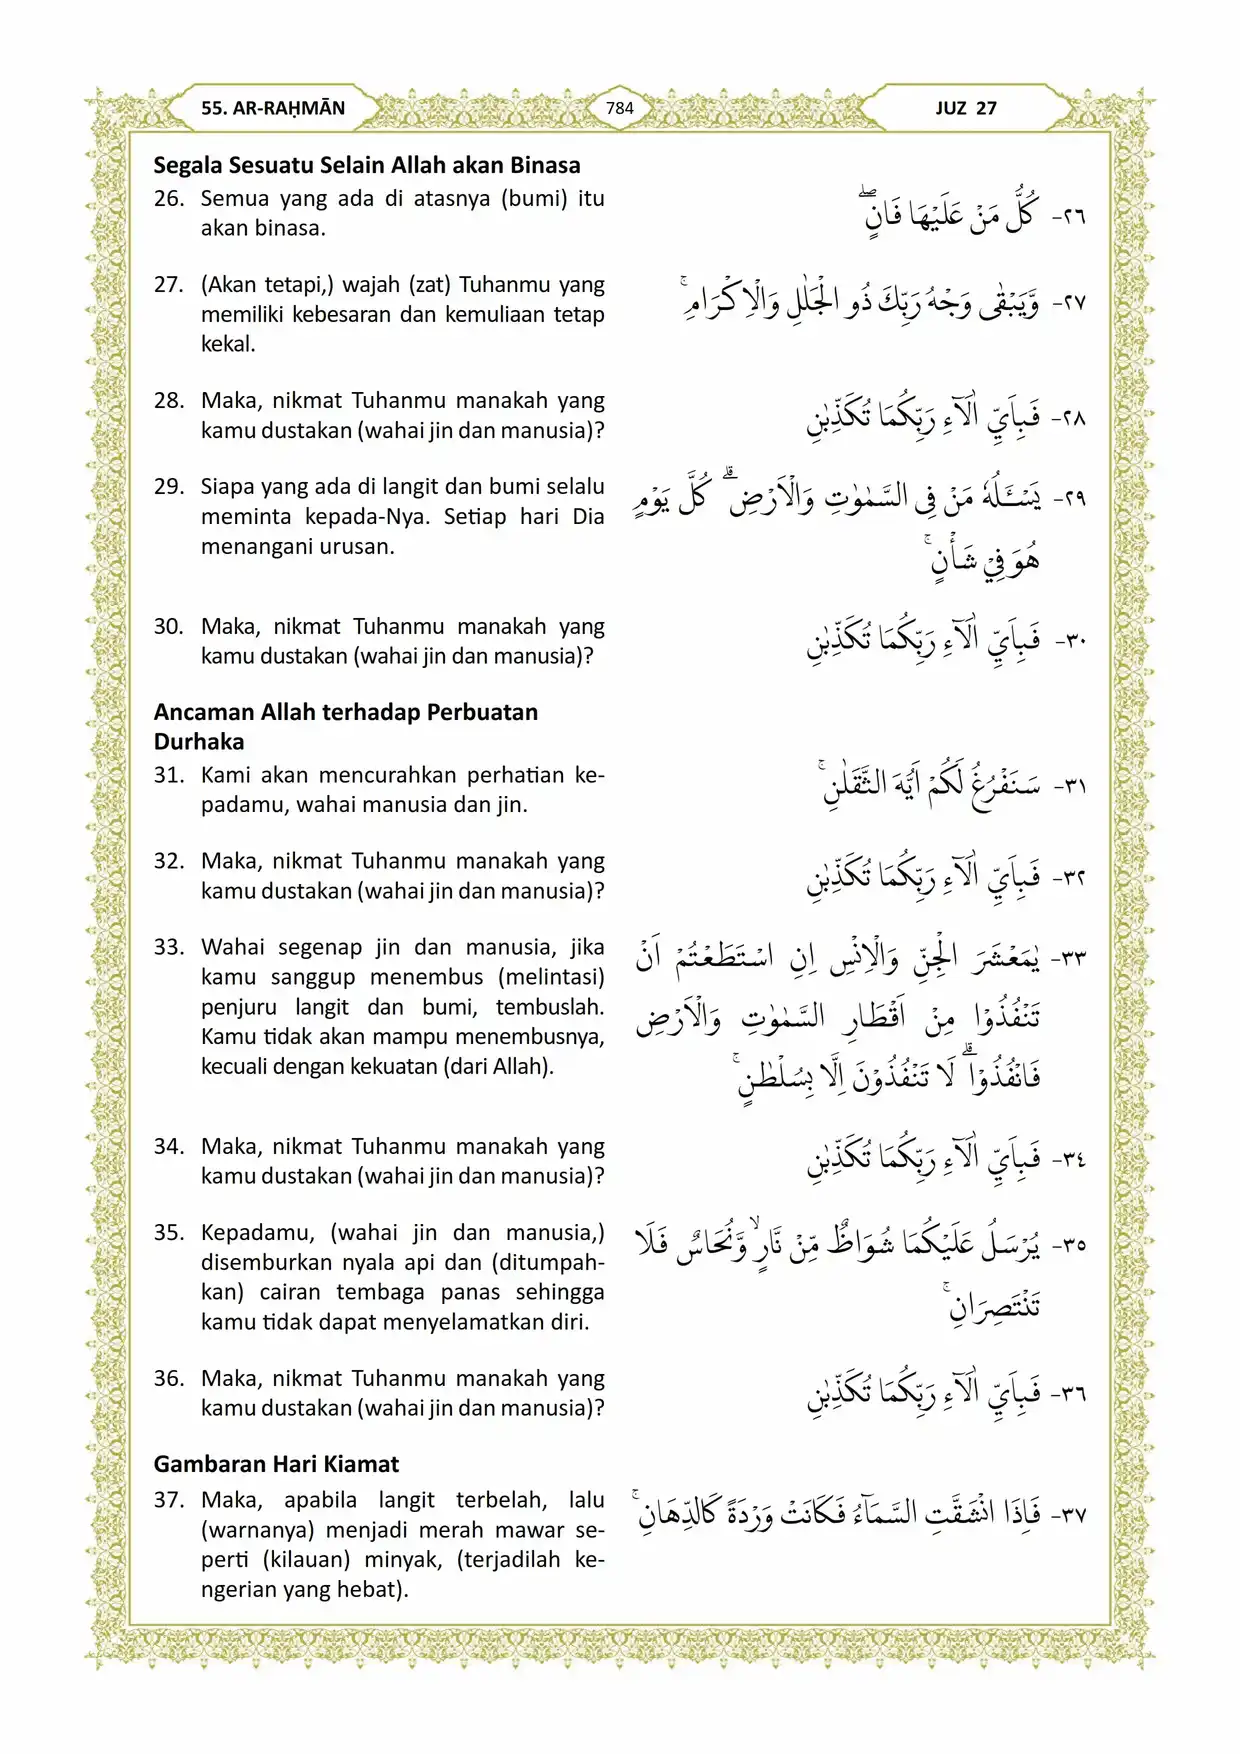 55. AR-RAḤMĀN
784
JUZ 27
Segala Sesuatu Selain Allah akan Binasa
26. Semua yang ada di atasnya (bumi) itu
akan binasa.
٢٦- كُلُّ مَنْ عَلَيْهَا فَانٍۖ
27. (Akan tetapi,) wajah (zat) Tuhanmu yang
memiliki kebesaran dan kemuliaan tetap
kekal.
٢٧- وَّيَبْقٰى وَجْهُ رَبِّكَ ذُو الْجَلٰلِ وَالْاِكْرَامِۚ
28. Maka, nikmat Tuhanmu manakah yang
kamu dustakan (wahai jin dan manusia)?
٢٨- فَبِاَيِّ اٰلَاۤءِ رَبِّكُمَا تُكَذِّبٰنِ
29. Siapa yang ada di langit dan bumi selalu
meminta kepada-Nya. Setiap hari Dia
menangani urusan.
٢٩- يَسْـَٔلُهٗ مَنْ فِى السَّمٰوٰتِ وَالْاَرْضِۗ كُلَّ يَوْمٍ
هُوَ فِيْ شَأْنٍۚ
30. Maka, nikmat Tuhanmu manakah yang
kamu dustakan (wahai jin dan manusia)?
٣٠- فَبِاَيِّ اٰلَاۤءِ رَبِّكُمَا تُكَذِّبٰنِ
Ancaman Allah terhadap Perbuatan
Durhaka
31. Kami akan mencurahkan perhatian ke-
padamu, wahai manusia dan jin.
٣١- سَنَفْرُغُ لَكُمْ اَيُّهَ الثَّقَلٰنِۚ
32. Maka, nikmat Tuhanmu manakah yang
kamu dustakan (wahai jin dan manusia)?
٣٢- فَبِاَيِّ اٰلَاۤءِ رَبِّكُمَا تُكَذِّبٰنِ
33. Wahai segenap jin dan manusia, jika
kamu sanggup menembus (melintasi)
penjuru langit dan bumi, tembuslah.
Kamu tidak akan mampu menembusnya,
kecuali dengan kekuatan (dari Allah).
٣٣- يٰمَعْشَرَ الْجِنِّ وَالْاِنْسِ اِنِ اسْتَطَعْتُمْ اَنْ
تَنْفُذُوْا مِنْ اَقْطَارِ السَّمٰوٰتِ وَالْاَرْضِ
فَانْفُذُوْاۗ لَا تَنْفُذُوْنَ اِلَّا بِسُلْطٰنٍۚ
34. Maka, nikmat Tuhanmu manakah yang
kamu dustakan (wahai jin dan manusia)?
٣٤- فَبِاَيِّ اٰلَاۤءِ رَبِّكُمَا تُكَذِّبٰنِ
35. Kepadamu, (wahai jin dan manusia,)
disemburkan nyala api dan (ditumpah-
kan) cairan tembaga panas sehingga
kamu tidak dapat menyelamatkan diri.
٣٥- يُرْسَلُ عَلَيْكُمَا شُوَاظٌ مِّنْ نَّارٍۙ وَّنُحَاسٌ فَلَا
تَنْتَصِرَانِۚ
36. Maka, nikmat Tuhanmu manakah yang
kamu dustakan (wahai jin dan manusia)?
٣٦- فَبِاَيِّ اٰلَاۤءِ رَبِّكُمَا تُكَذِّبٰنِ
Gambaran Hari Kiamat
37. Maka, apabila langit terbelah, lalu
(warnanya) menjadi merah mawar se-
perti (kilauan) minyak, (terjadilah ke-
ngerian yang hebat).
٣٧- فَاِذَا انْشَقَّتِ السَّمَاۤءُ فَكَانَتْ وَرْدَةً كَالدِّهَانِۚ